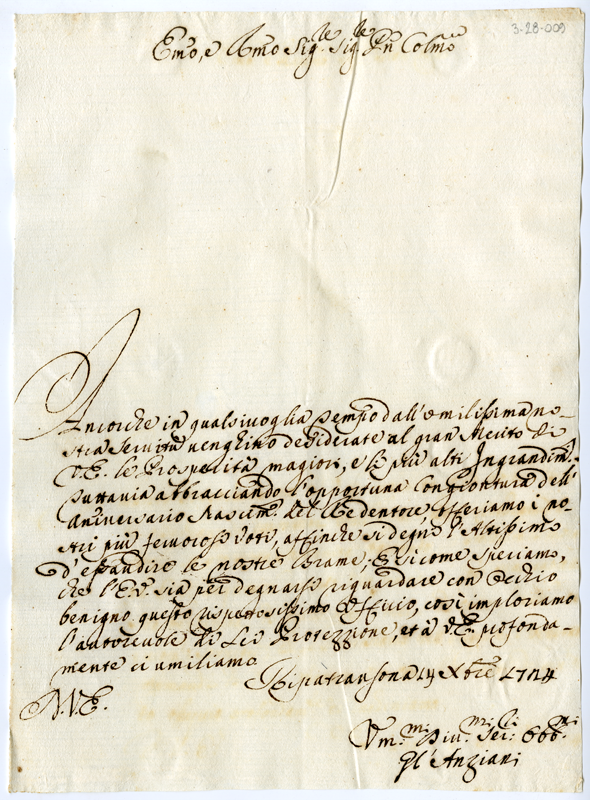 3-28-009
Em̃o, e Rm̃o Sig.re Sig.re Pñ Colmo
Ancorche in qualsivoglia Tempo dall'umilissima no-
stra Servitù venghino desiderate al gran Merito di
V.E. le Prosperità magiori, e li più alti Ingrandim.ti
Tuttavia abbracciando l'opportuna Congiontura dell'
Aniversario Nascim.to del Redentore offeriamo i no-
stri più fervorosi Voti, affinche si degni l'Altissimo
d'esaudire le nostre Brame, E sicome speriamo,
che l'E.V. sia per degnarsi riguardare con Occhio
benigno questo rispettosissimo Officio, così imploriamo
l'autorevole di Lei Protezzione, et à V.E. profonda-
mente ci umiliamo
Ripatransona 14 Xbre 1714
D.V.E.
Vm.mi Div.mi Ser.ri Obb.mi
Gl'Anziani